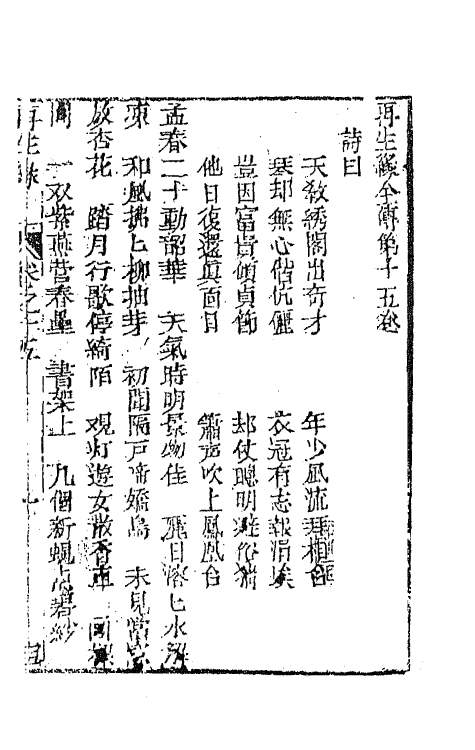 再生緣全傳第十五卷
詩曰
天教綉閣出奇才　年少風流
琴却無心偕伉儷　衣冠有志報涓埃
豈因富貴傾貞節　却仗聰明避俗猜
他日復還真面目　簫声吹上鳳凰台
孟春二十動韶華　天氣時明景物佳　麗日溶匕水
東　和風拂匕柳抽芽　初聞隔戶啼嬌鳥　未見當
放杏花　踏月行歌停綺陌　观灯遊女散香車　園
間　一双紫燕营春壘　書架上　九個新蜩占碧紗
再生緣　卷之十五